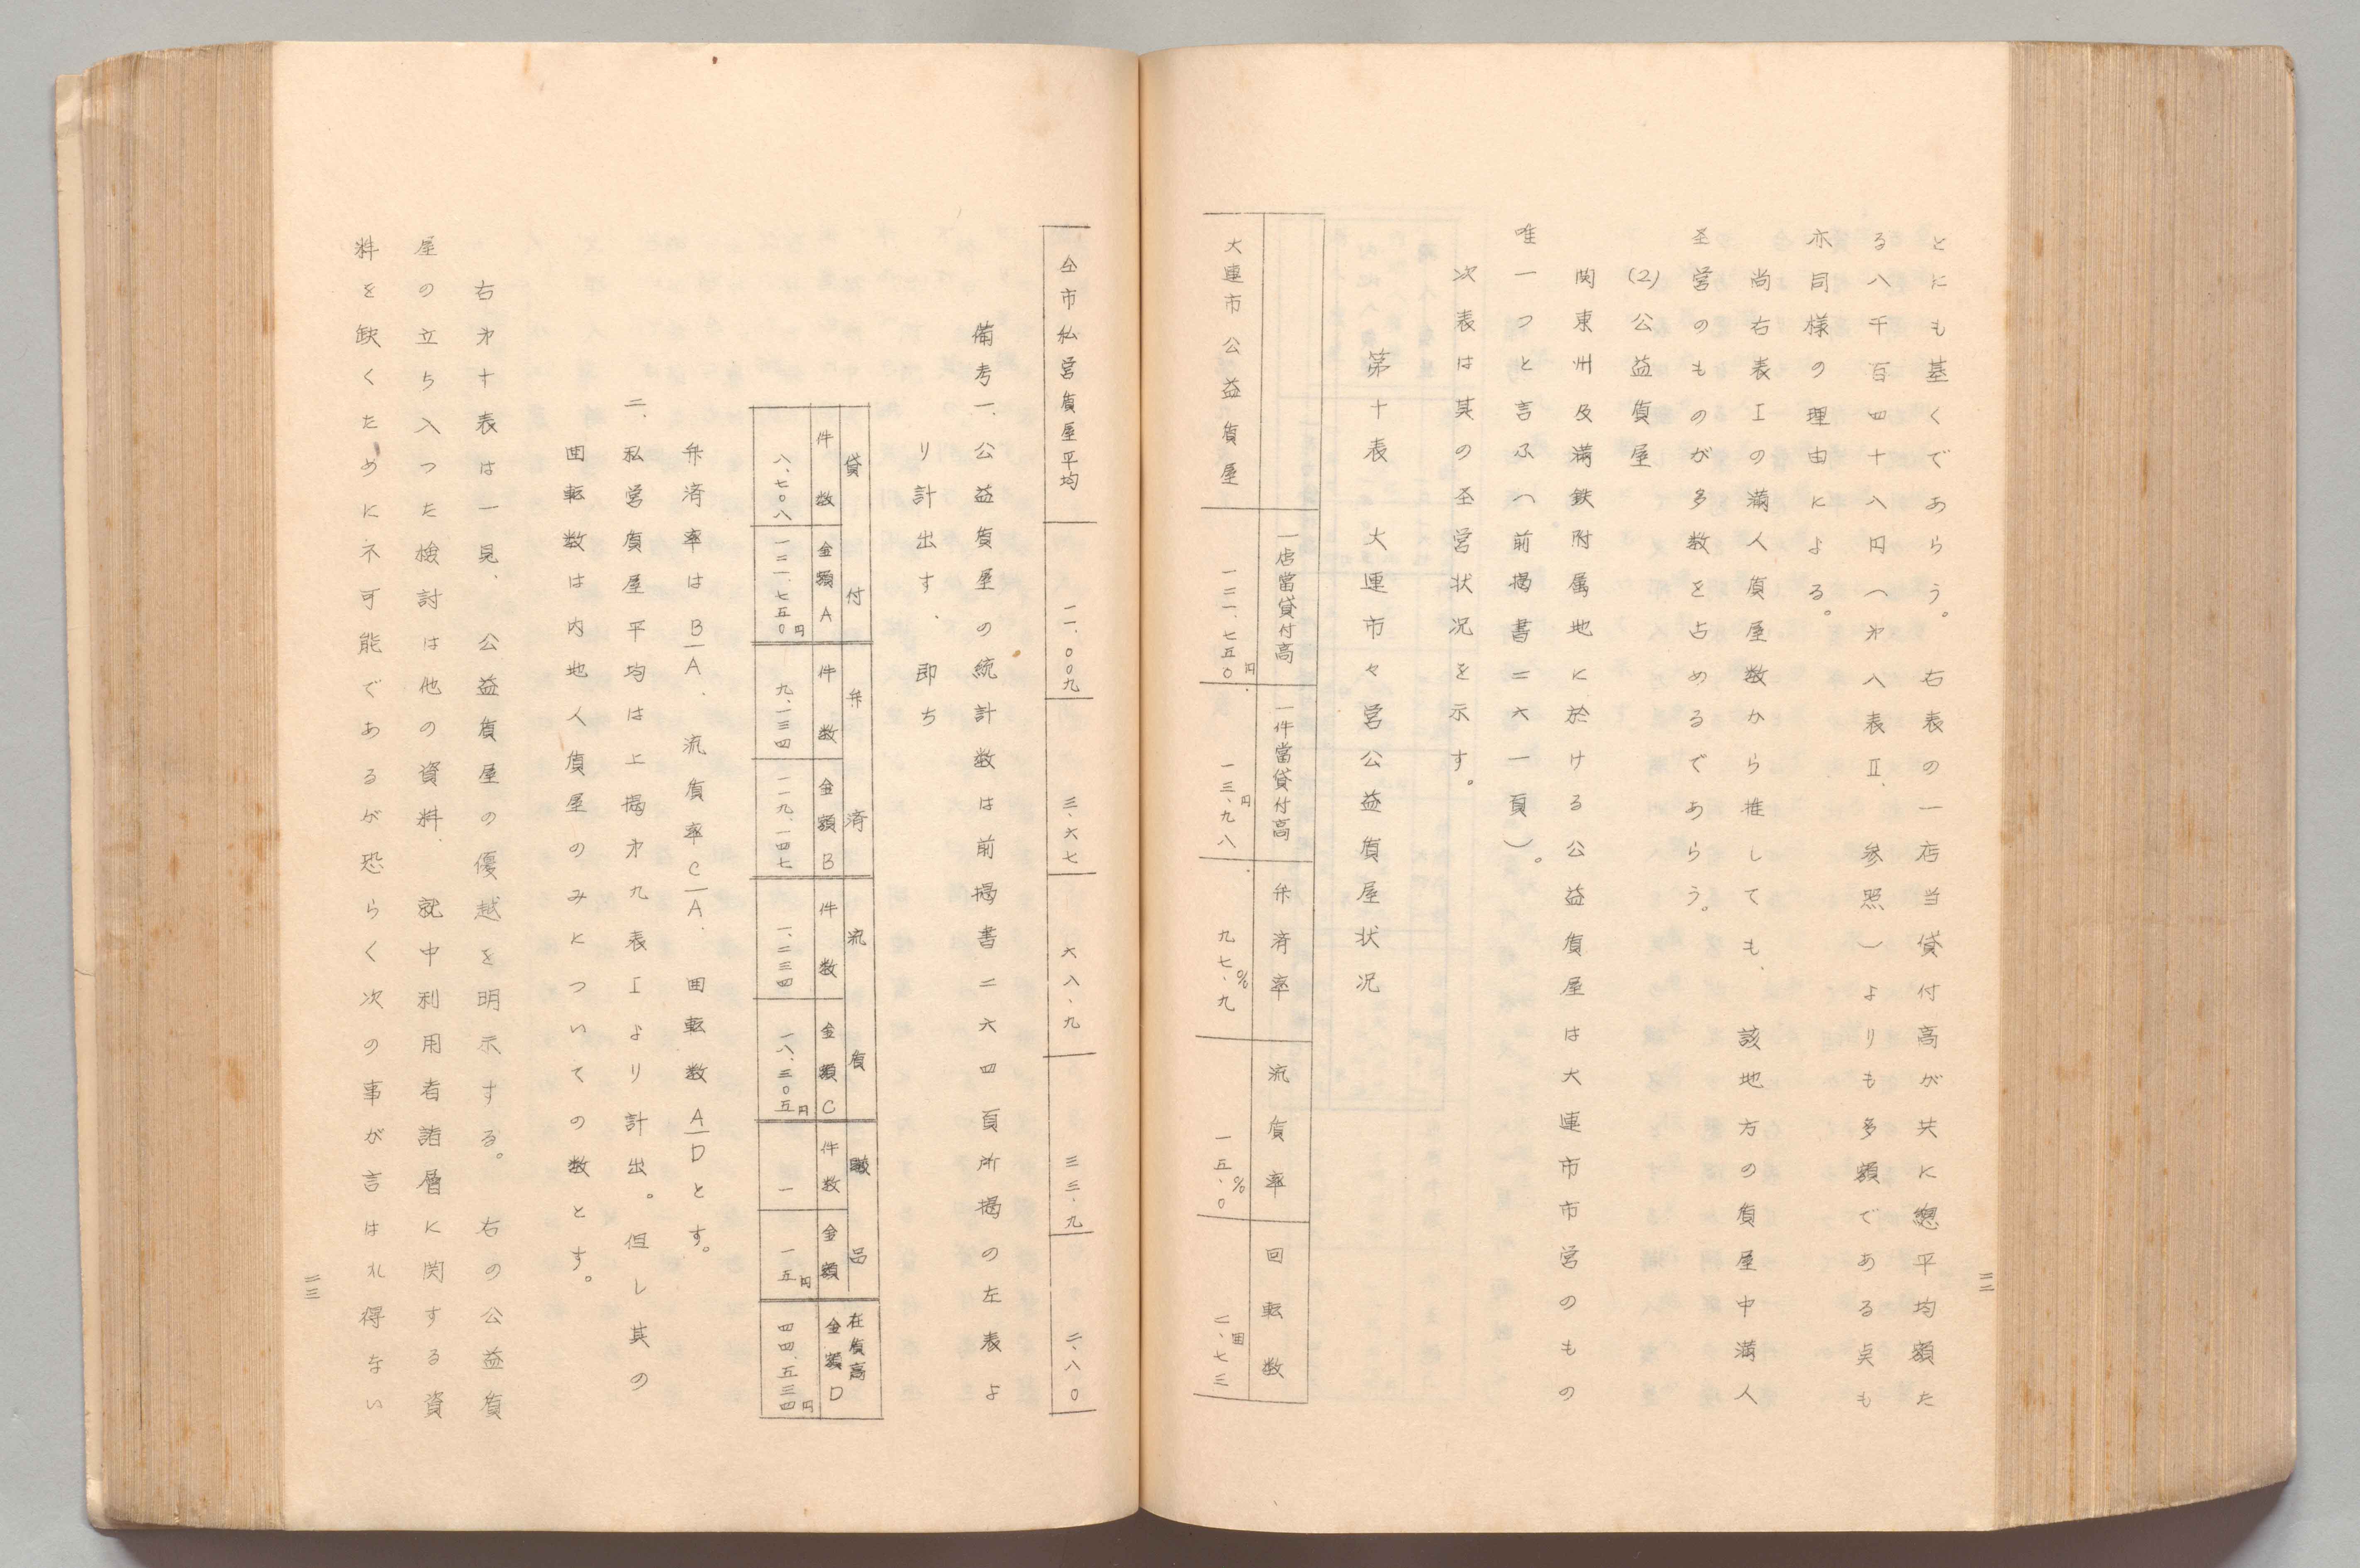 とにも基くであらう。右表の一店当貸付高が共に總平均額た
る八千百四十八円（才八表Ⅱ、参照）よりも多額である点も
亦同様の理由による。
尚右表Ｉの満人質屋数から推しても、該地方の質屋中満人
圣営のものが多数を占めるであらう。
(2)公益質屋
関東州及満鉄附属地に於ける公益質屋は大連市市営のもの
唯一つと言ふ（前掲書二六一頁）。
次表は其の圣営状況を示す。
第十表　大連市々営公益質屋状况
一店當貸付高　一件當貸付高　弁済率　流質率　回転数
大連市公益質屋　一二一、七五〇円　一三、九八円　九七、九%　一五、〇%　二、七三囬
二二
仝市私営質屋平均　一一、〇〇九　三、六七　六八、九　三三、九　二、八〇
備考一、公益質屋の統計数は前掲書二六四頁所掲の左表よ
り計出す、即ち
貸付　弁済　流質　品　在質高
件数　金額A　件数　金額B　件数　金額C　件数　金額　金額D
八、七〇八　一二一、七五〇円　九、一三四　一一九、一四七　一、二三四　一八、三〇五円　一　一五円　四四、五三四円
弁済率はB/A、流質率C/A、囬転数A/Dとす。
二、私営質屋平均は上掲才九表Ｉより計出。但し其の
囬転数は内地人質屋のみについての数とす。
右才十表は一見、公益質屋の優越を明示する。右の公益質
屋の立ち入つた検討は他の資料、就中利用者諸層に関する資
料を缺くために不可能であるが恐らく次の事が言はれ得ない
二三